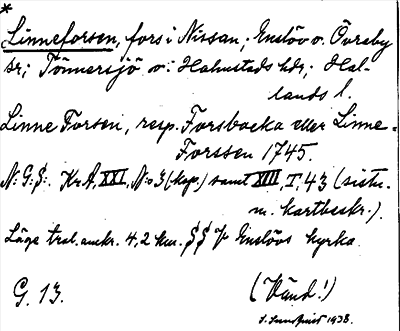 *
Linneforsen, fors i Nissan; Enslöv o. Övraby
sr; Tönnersjö o: Halmstads hdr; Hal-
lands l.
Linne Forsen, resp. Forsbacka eller Linne-
Forssen 1745.
N: G: S: Kr A, XXI, N:o 3 (kop.) samt XIII, I, 43 (sistn.
m. kartbeskr.).
Läge tral. ankr. 4,2 km. Enslövs kyrka.
G. 13. (Vänd!)
S. Lundquist 1938.